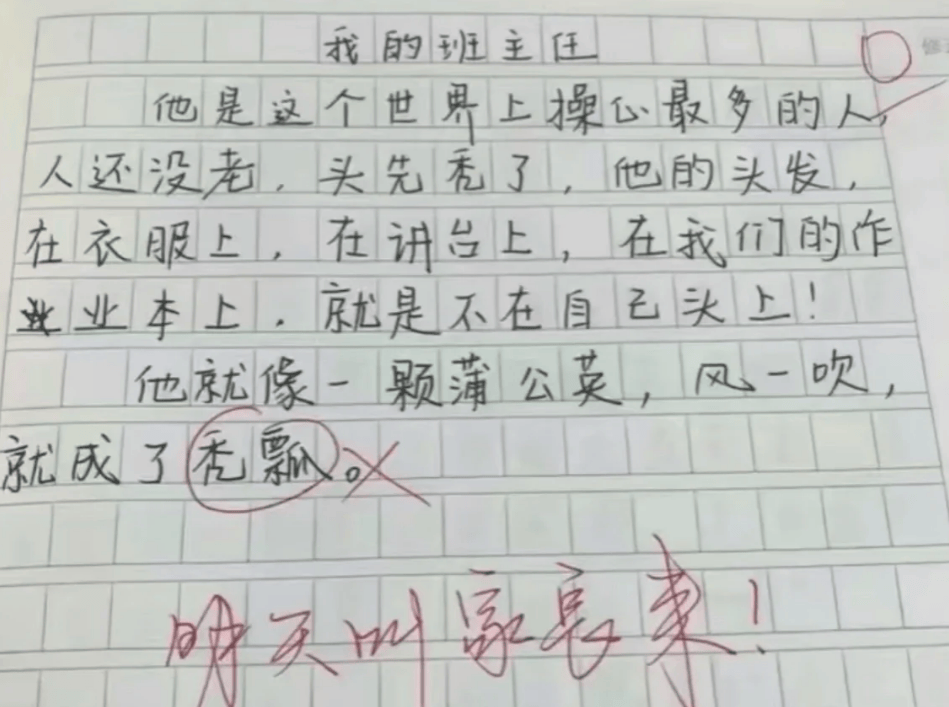 我的班主任
他是这个世界上操心最多的人,
人还没老,头先秃了,他的头发,
在衣服上,在讲台上,在我们的作
业本上,就是不在自己头上!
他就像一颗蒲公英,风一吹,
就成了秃瓢。
明天叫家长来!